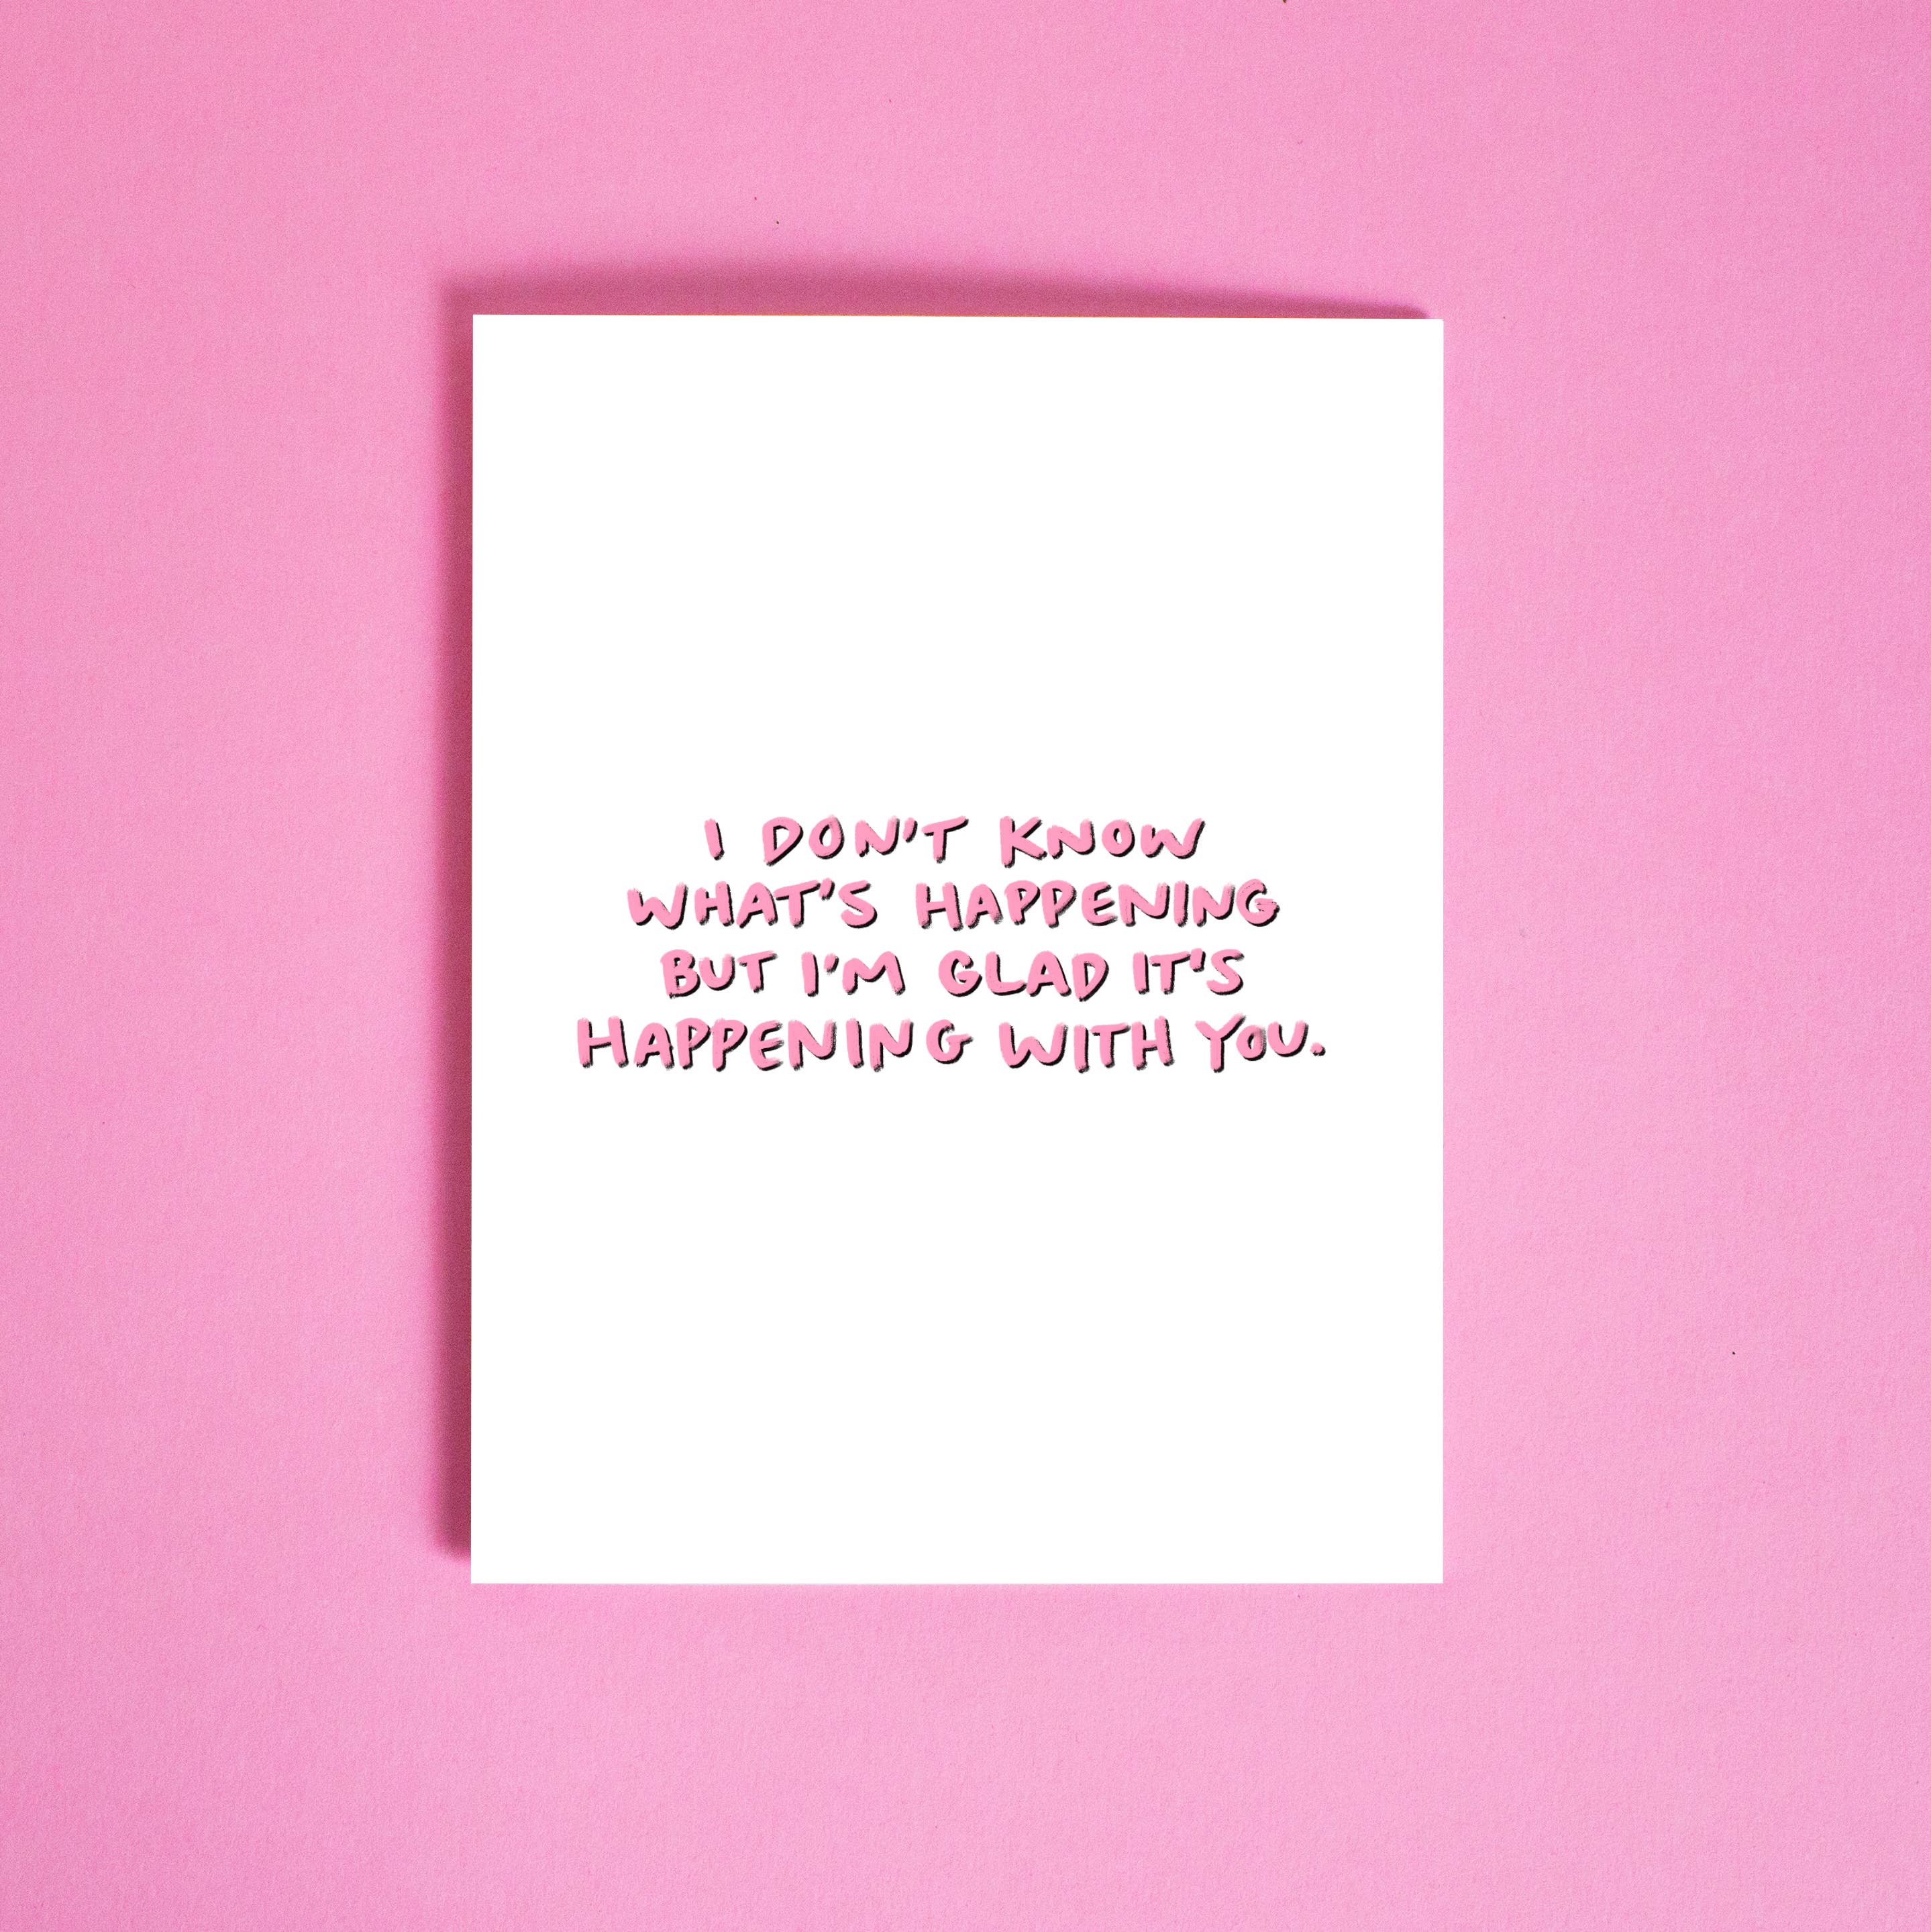 I DON'T KNOW
WHAT'S HAPPENING
BUT I'M GLAD IT'S
HAPPENING WITH YOU.